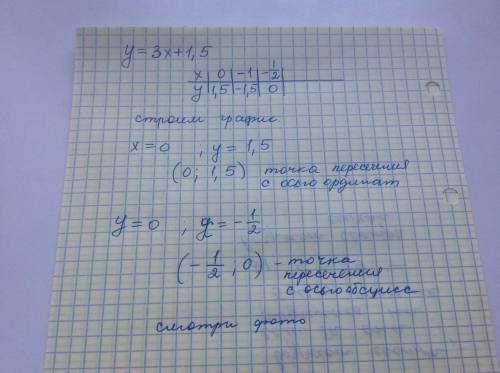 y = 3x+1,5
x | 0 | -1 | -1/2
y | 1,5 | -1,5 | 0
строим график
x = 0 , y = 1,5
(0; 1,5) точка пересечения
с осью ординат
y = 0 ; y = -1/2
(-1/2 ; 0) - точка
пересечения
с осью абсцисс
смотри фото